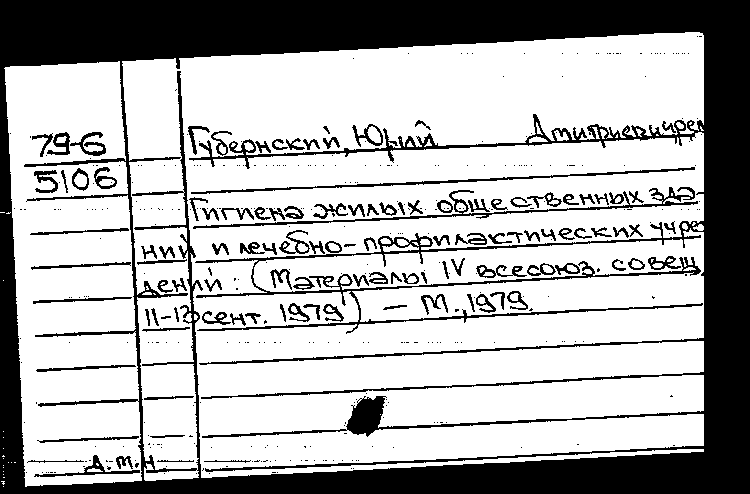 79-6
5106
Губернский, Юрий Дмитриевич, ред
Гигиена жилых общественных зда-
ний и лечебно-профилактических учре
дений: (Материалы IV всесоюз. совещ.
11-12 сент. 1979). - М., 1979.
д.т.н.